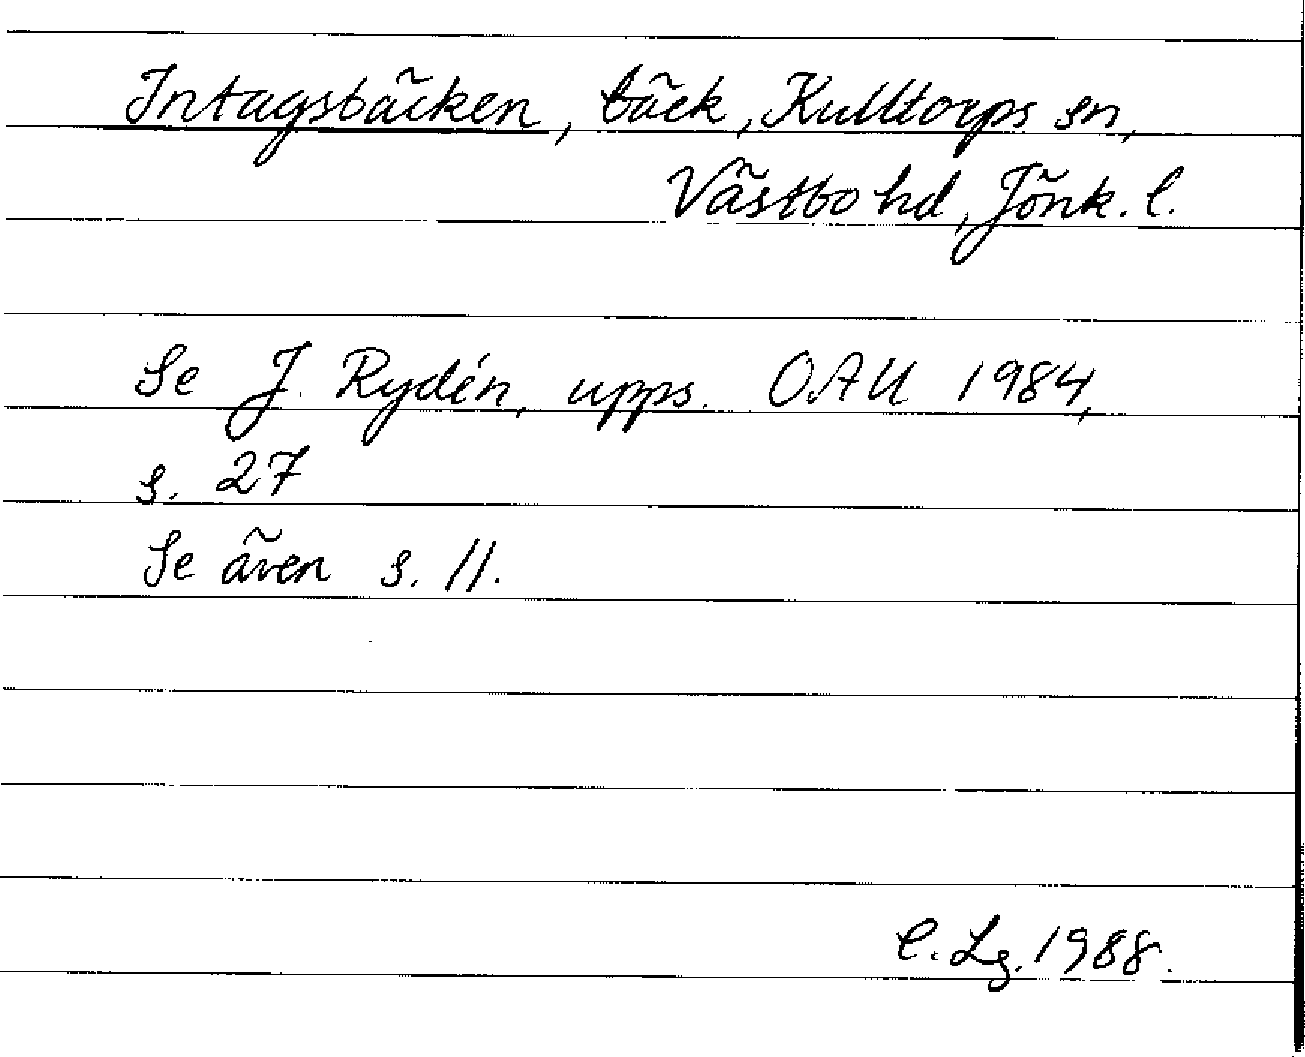 Intagsbäcken, bäck, Kulltorps sn,
Västbo hd, Jönk. l.
Se J. Rydén, upps. OAU 1984,
s. 27
Se även s. 11.
C. Lg. 1988.